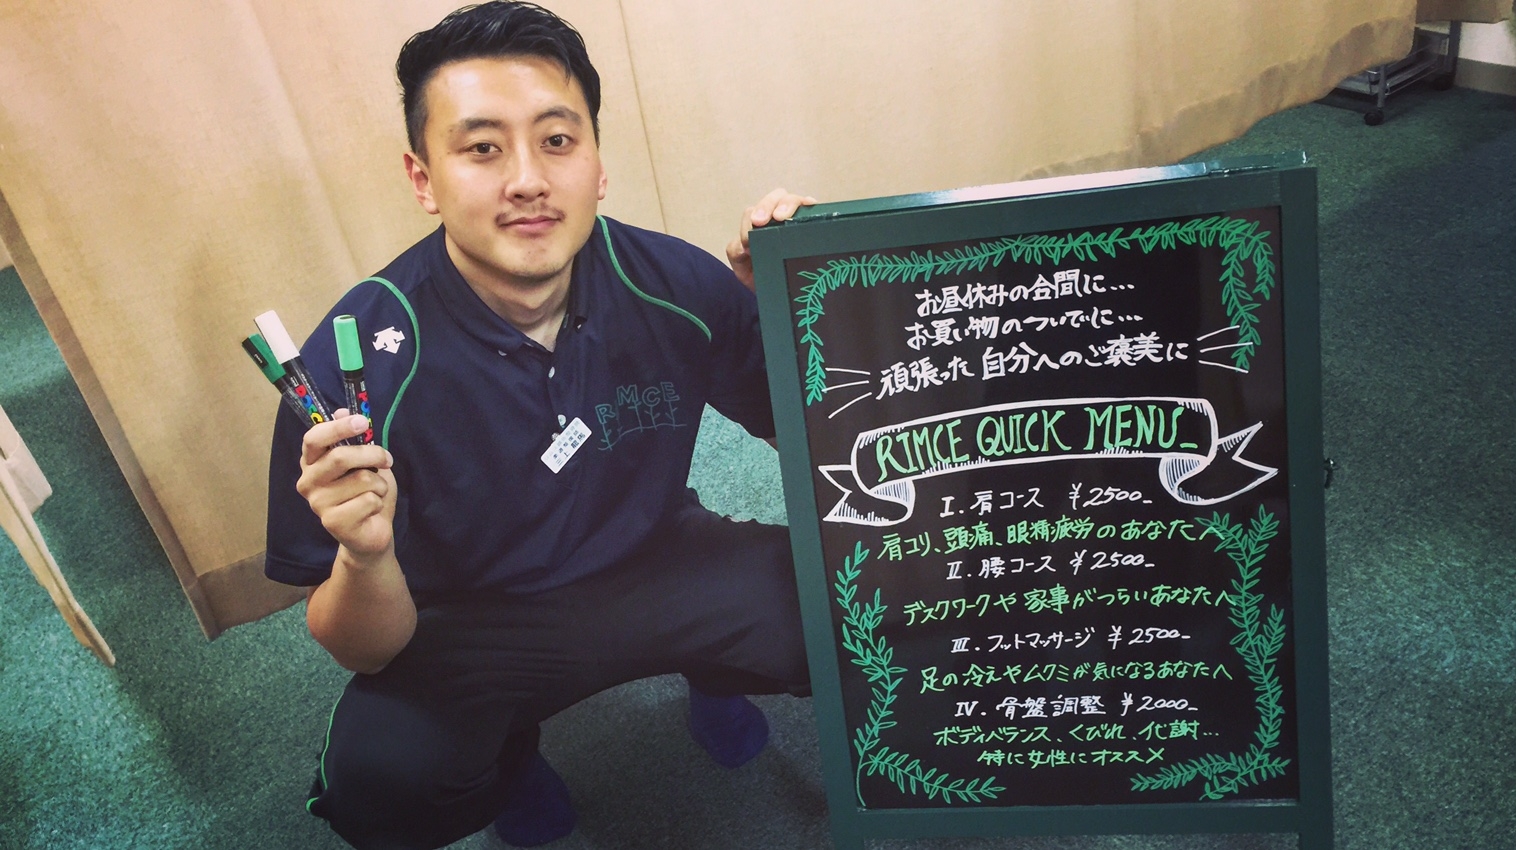 RIMCE
お昼休みの合間に…
お買い物のついでに…
頑張った自分へのご褒美に
RIMCE QUICK MENU_
I. 肩コース ¥2500_
肩コリ、頭痛、眼精疲労のあなたへ
II. 腰コース ¥2500_
デスクワークや家事がつらいあなたへ
III. フットマッサージ ¥2500_
足の冷えやムクミが気になるあなたへ
IV. 骨盤調整 ¥2000_
ボディバランス、くびれ、代謝…
特に女性にオススメ